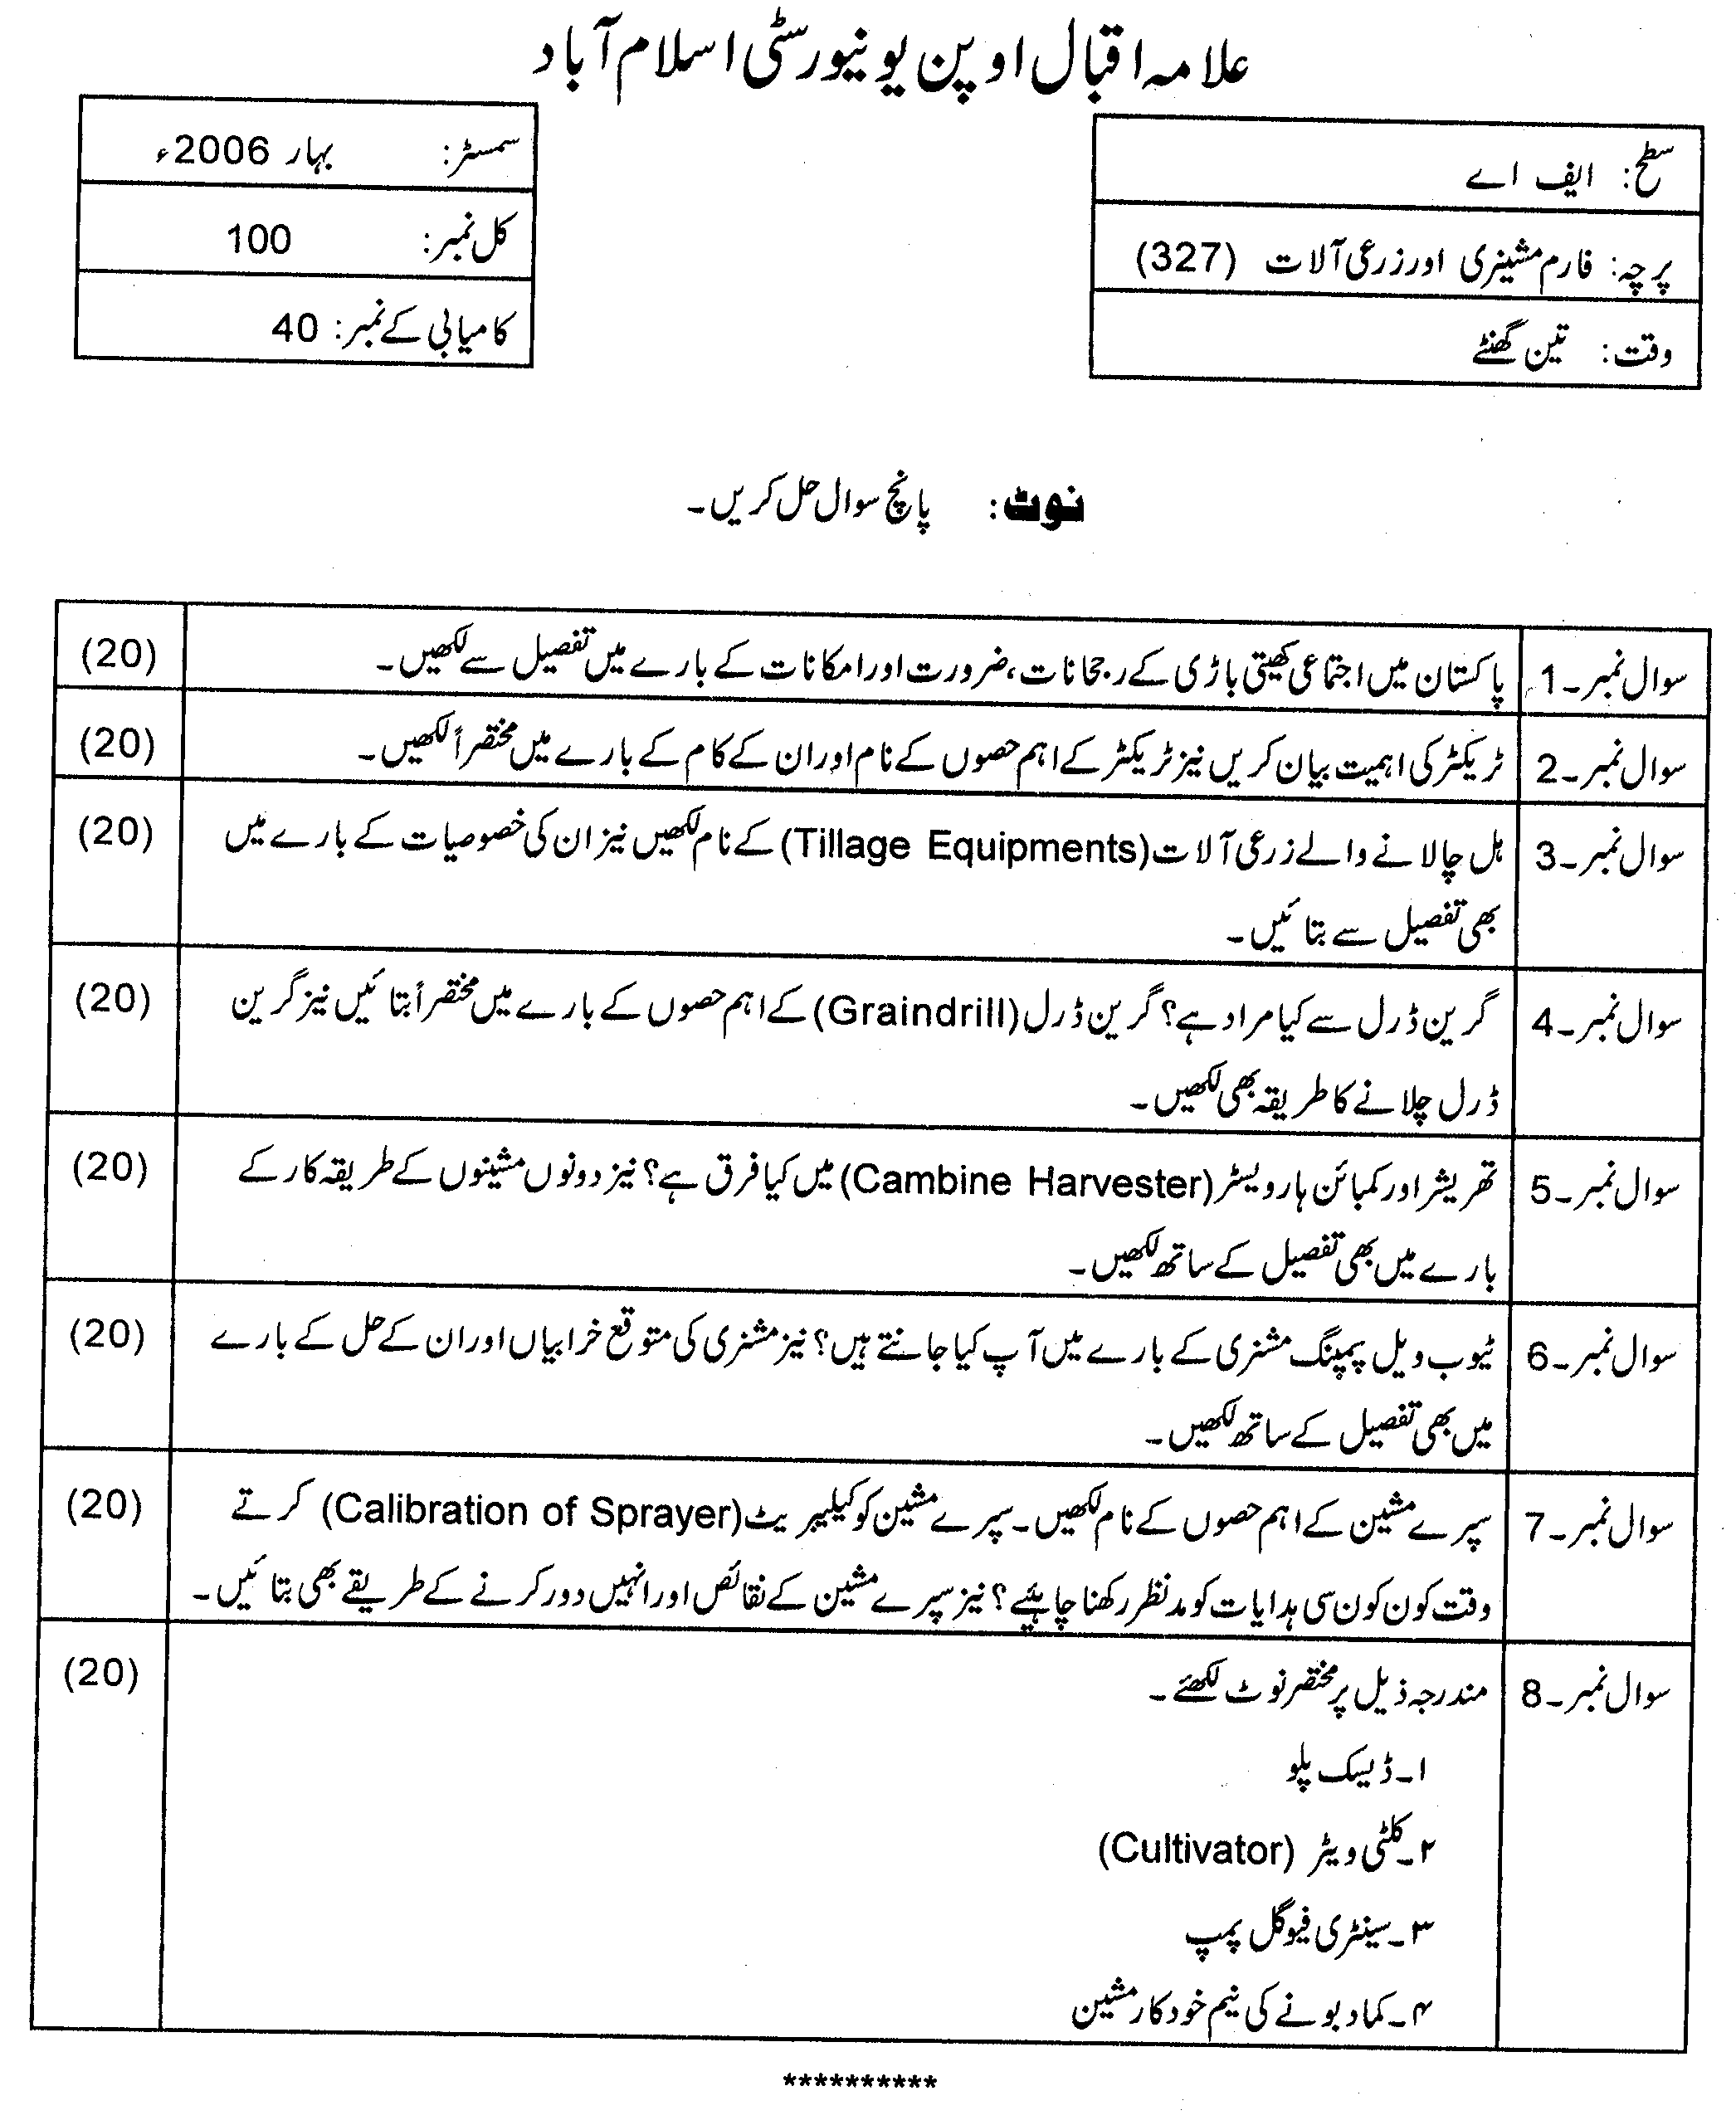 علامہ اقبال اوپن یونیورسٹی اسلام آباد
سطح: ایف اے
پرچہ: فارم مشینری اور زرعی آلات (327)
وقت: تین گھنٹے
سمسٹر: بہار 2006ء
کل نمبر: 100
کامیابی کے نمبر: 40
نوٹ: پانچ سوال حل کریں۔
سوال نمبر۔1 پاکستان میں اجتماعی کھیتی باڑی کے رجحانات، ضرورت اور امکانات کے بارے میں تفصیل سے لکھیں۔ (20)
سوال نمبر۔2 ٹریکٹر کی اہمیت بیان کریں نیز ٹریکٹر کے اہم حصوں کے نام اور ان کے کام کے بارے میں مختصراً لکھیں۔ (20)
سوال نمبر۔3 ہل چالانے والے زرعی آلات (Tillage Equipments) کے نام لکھیں نیز ان کی خصوصیات کے بارے میں (20)
بھی تفصیل سے بتائیں۔
سوال نمبر۔4 گرین ڈرل سے کیا مراد ہے؟ گرین ڈرل (Graindrill) کے اہم حصوں کے بارے میں مختصراً بتائیں نیز گرین (20)
ڈرل چلانے کا طریقہ بھی لکھیں۔
سوال نمبر۔5 تھریشر اور کمبائن ہارویسٹر (Cambine Harvester) میں کیا فرق ہے؟ نیز دونوں مشینوں کے طریقہ کار کے (20)
بارے میں بھی تفصیل کے ساتھ لکھیں۔
سوال نمبر۔6 ٹیوب ویل پمپنگ مشنری کے بارے میں آپ کیا جانتے ہیں؟ نیز مشنری کی متوقع خرابیاں اور ان کے حل کے بارے (20)
میں بھی تفصیل کے ساتھ لکھیں۔
سوال نمبر۔7 سپرے مشین کے اہم حصوں کے نام لکھیں۔ سپرے مشین کو کیلیبریٹ (Calibration of Sprayer) کرتے (20)
وقت کون کون سی ہدایات کو مدنظر رکھنا چاہئیے؟ نیز سپرے مشین کے نقائص اور انہیں دور کرنے کے طریقے بھی بتائیں۔
سوال نمبر۔8 مندرجہ ذیل پر مختصر نوٹ لکھئے۔ (20)
۱۔ ڈیسک پلو
۲۔ کلٹی ویٹر (Cultivator)
۳۔ سینٹری فیوگل پمپ
۴۔ کماد بونے کی نیم خودکار مشین
**********